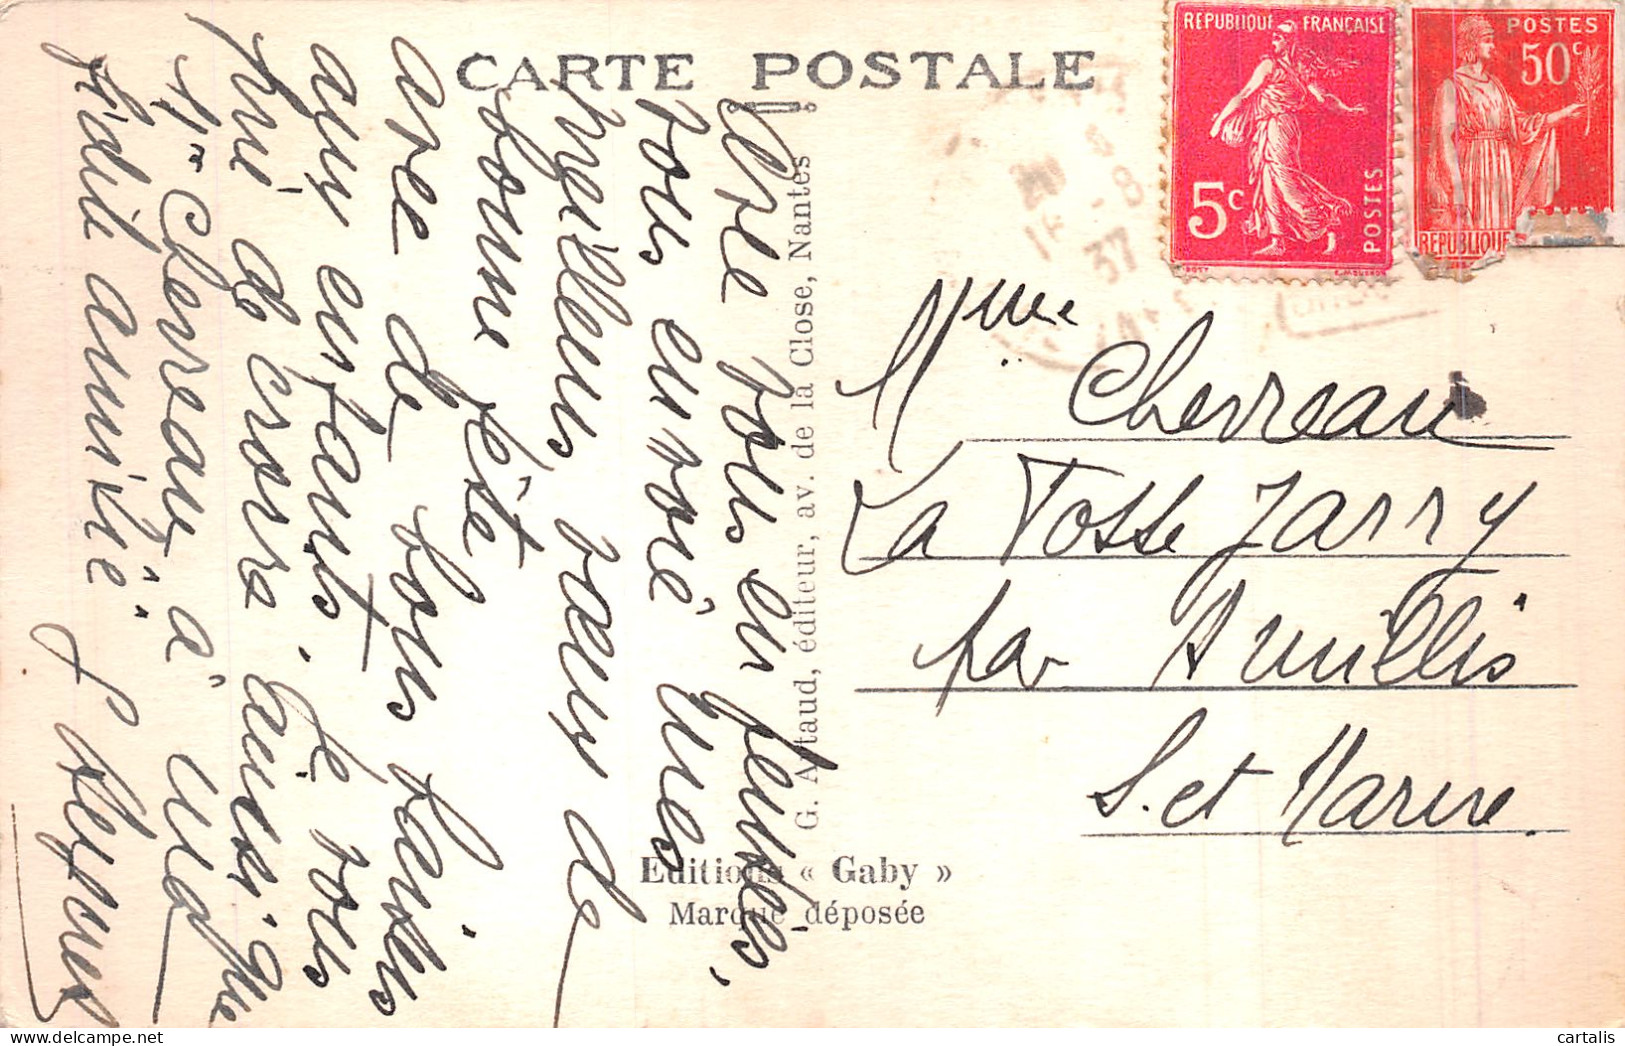 CARTE POSTALE
REPUBLIQUE FRANÇAISE
5c
POSTES
POSTES
50c
REPUBLIQUE
-8
37
G. Artaud, éditeur, av. de la Close, Nantes
Editions « Gaby »
Marque déposée
Mme Chevreau
La Fosse Jarry
par Amillis
S. et Marne.
vous
vous envoie mes
meilleurs vœux de
bonne fête
de bons baisers
aux enfants. Je vous
prie de croire ainsi que
Mr Chevreau, à ma
fidèle amitié